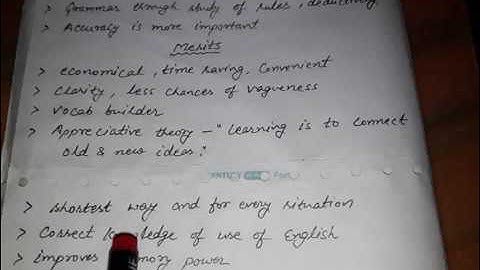 > Grammar through study of rules, deductively
> Accuracy is more important
Merits
> economical, time saving, convenient
> clarity, less chances of vagueness
> Vocab builder
> Appreciative theory - "Learning is to connect
old & new ideas."
> shortest way and for every situation
> Correct knowledge of use of English
> improves memory power